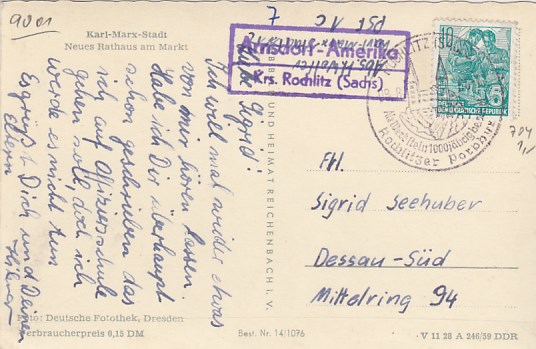 9001
Karl-Marx-Stadt
Neues Rathaus am Markt
7
Arnsdorf-Amerika
Krs. Rochlitz (Sachs)
Liebe Sigrid!
Ich will mal wieder etwas
von mir hören lassen.
Habe ich Dir überhaupt
schon geschrieben, daß
ich auf Offiziersschule
gehen soll, doch ich
werde es nicht tun
Es grüßt Dich und Deinen
Eltern
BILD UND HEIMAT REICHENBACH I. V.
10
DEUTSCHE DEMOKRATISCHE REPUBLIK
ROCHLITZ (SACHS)
Rochlitzer Porphyr
704
1,-
Frl.
Sigrid Seehuber
Dessau-Süd
Mittelring 94
Foto: Deutsche Fotothek, Dresden
Verbraucherpreis 0,15 DM
Best. Nr. 14/1076
V 11 28 A 246/59 DDR